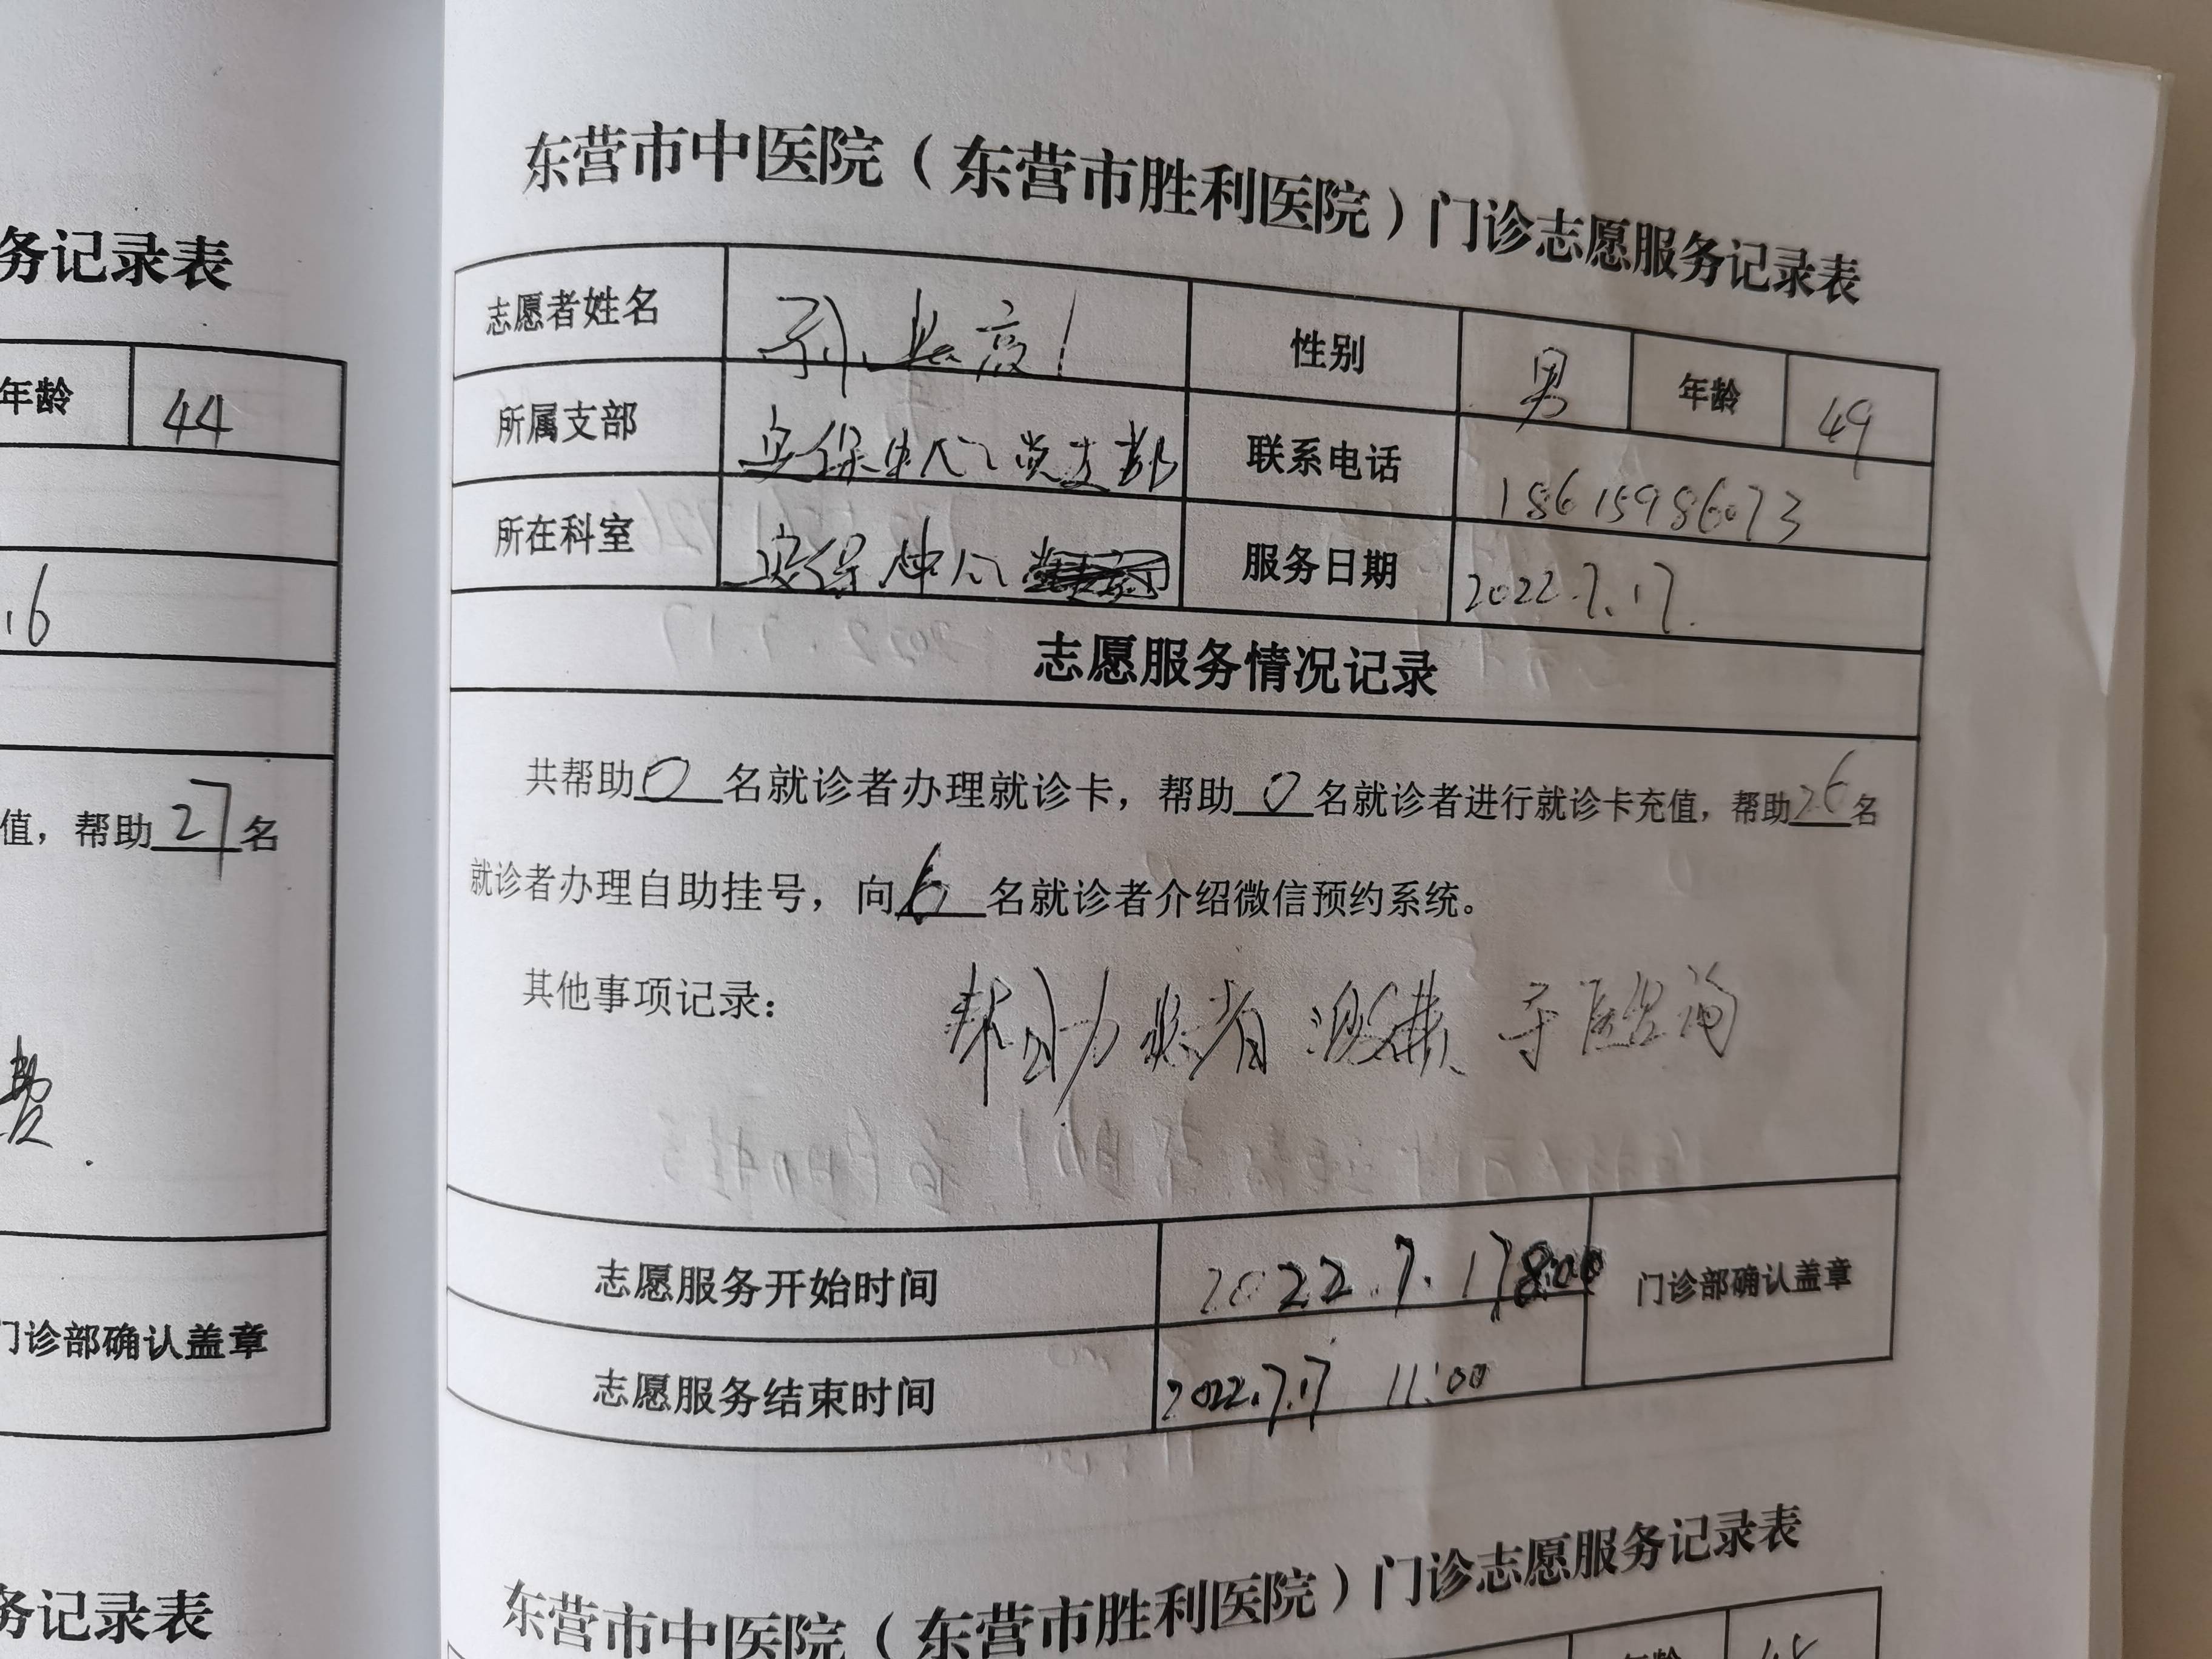 务记录表
年龄 44
.6
值，帮助27名
费
门诊部确认盖章
务记录表
东营市中医院（东营市胜利医院）门诊志愿服务记录表
志愿者姓名 孙 性别 男 年龄 49
所属支部 安保中心党支部 联系电话 18615986073
所在科室 安保中心 服务日期 2022.7.17.
志愿服务情况记录
共帮助0名就诊者办理就诊卡，帮助0名就诊者进行就诊卡充值，帮助26名
就诊者办理自助挂号，向6名就诊者介绍微信预约系统。
其他事项记录： 帮助患者缴费 导医咨询
志愿服务开始时间 2022.7.17 8:00 门诊部确认盖章
志愿服务结束时间 2022.7.17 11:00
东营市中医院（东营市胜利医院）门诊志愿服务记录表
年龄